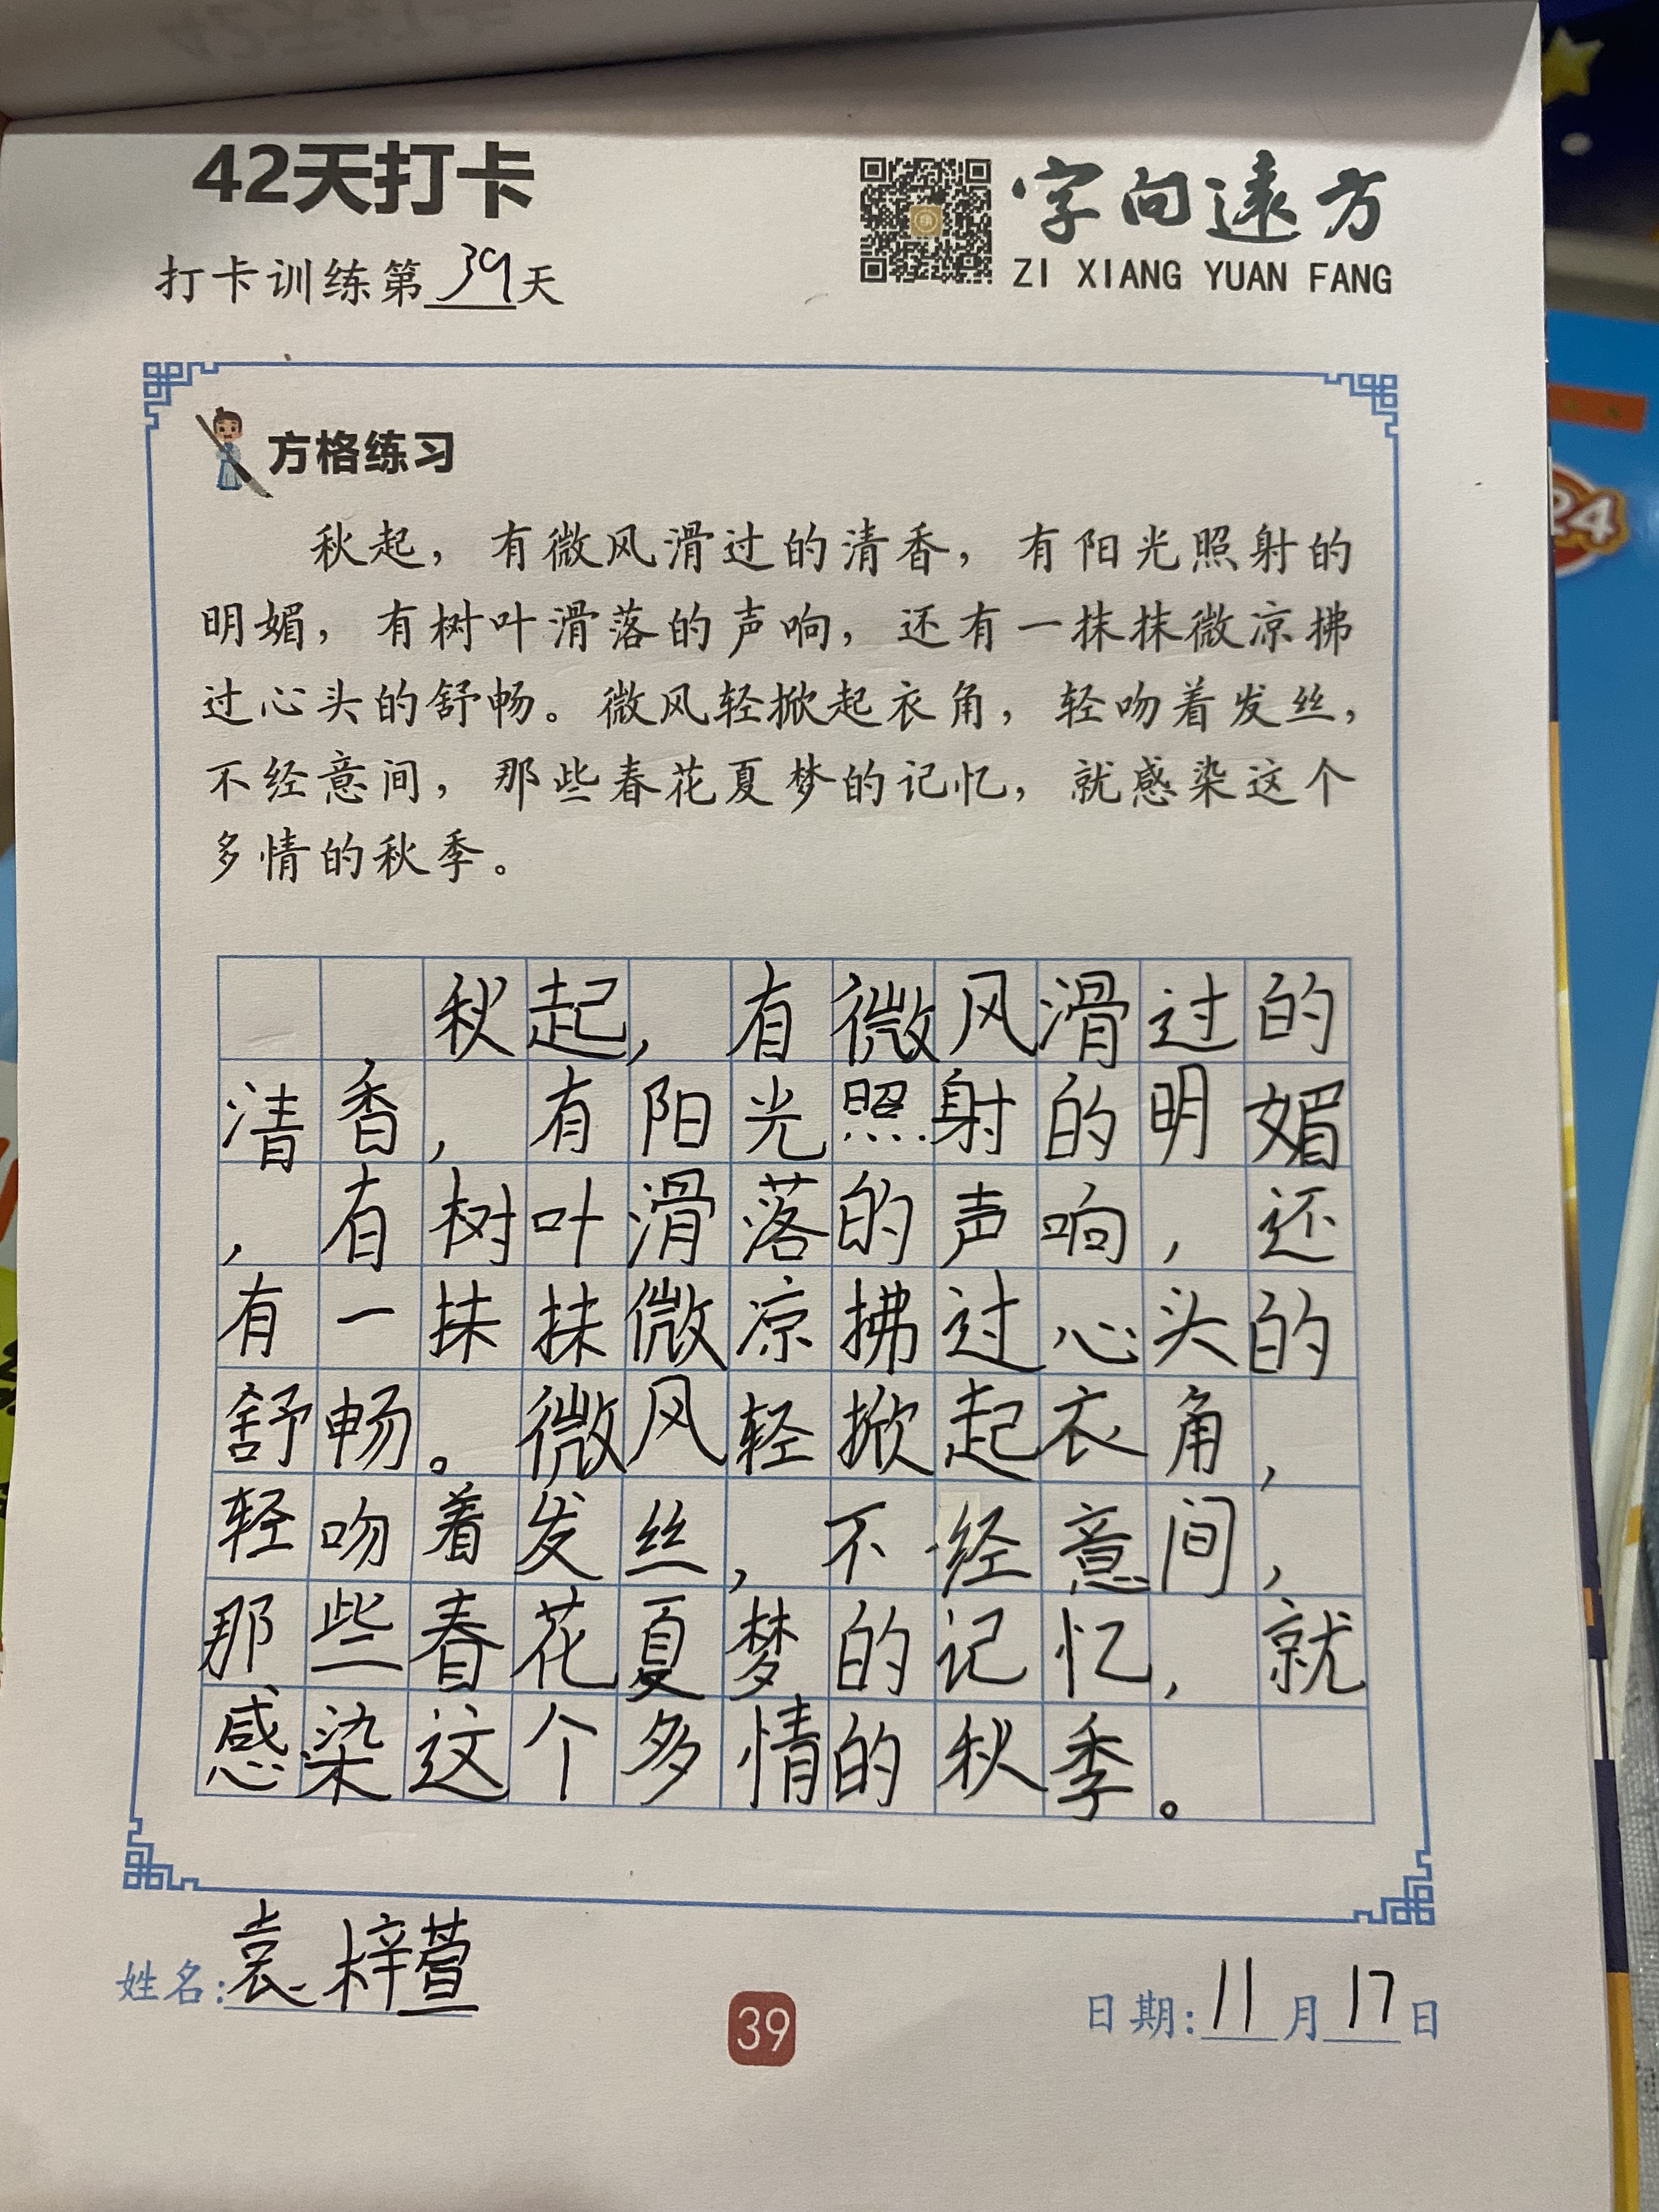 42天打卡
打卡训练第39天
字向远方
ZI XIANG YUAN FANG
方格练习
秋起，有微风滑过的清香，有阳光照射的
明媚，有树叶滑落的声响，还有一抹抹微凉拂
过心头的舒畅。微风轻掀起衣角，轻吻着发丝，
不经意间，那些春花夏梦的记忆，就感染这个
多情的秋季。
秋起，有微风滑过的
清香，有阳光照射的明媚
，有树叶滑落的声响，还
有一抹抹微凉拂过心头的
舒畅。微风轻掀起衣角，
轻吻着发丝，不经意间，
那些春花夏梦的记忆，就
感染这个多情的秋季。
姓名：袁梓萱
39
日期：11月17日
24